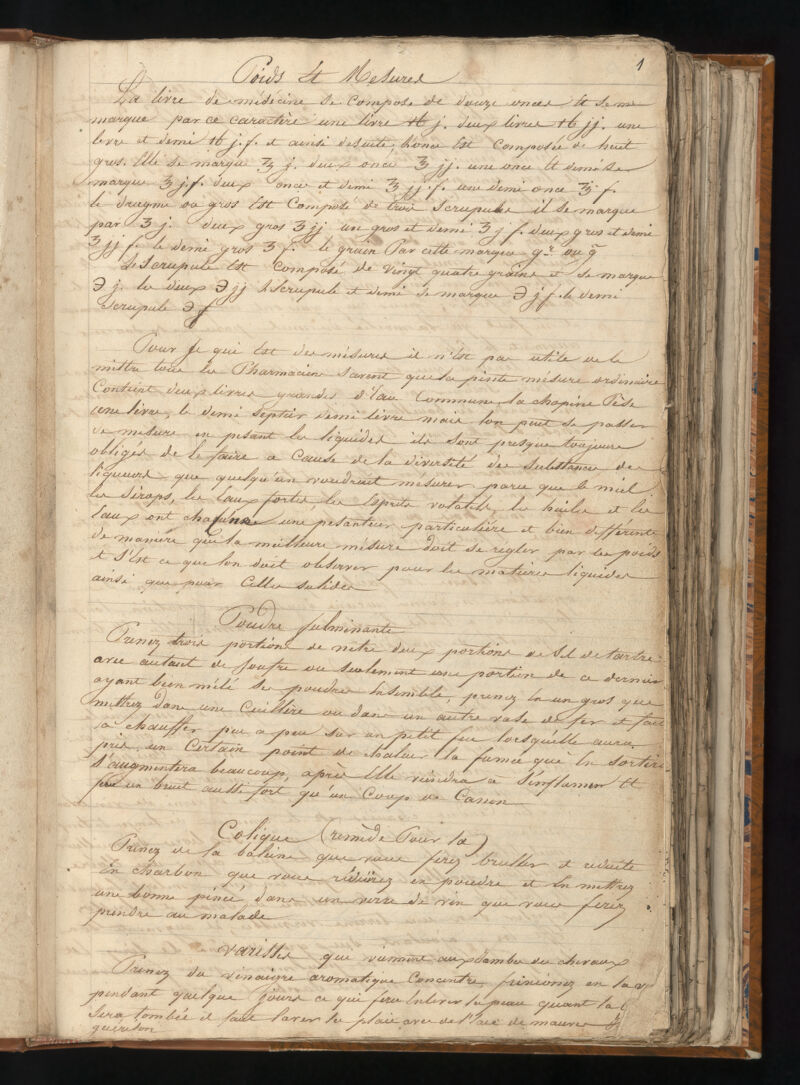 1
Poids et Mesures
La livre de médecine se compose de douze onces et se
marque par ce caractère une livre ℔ j. deux livres ℔ jj. une
livre et demi ℔ j.f. et ainsi desuite, l'once Est Composée de huit
gros. Elle se marque ℥ j. deux once ℥ jj. une once Et demi se
marque ℥ j.f. deux once et demi ℥ jj.f. une demi once ℥ f.
le dragme ou gros Est Composé de trois Scrupules il se marque
par ʒ j. deux gros ʒ jj un gros et demi ʒ j f. deux gros et demi
ʒ jj f. le demi gros ʒ f. le grain Par cette marque gr ou g
Le Scrupule Est Composé de vingt quatre grains et se marque
℈ j. le deux ℈ jj le Scrupule et demi se marque ℈ j f. le demi
Scrupule ℈ f
Pour se qui Est des mésures il n'Est pas utile de le
mettre tous les Pharmaciens savent que la pinte mésure ordinaire
Contient deux livres grandes d'Eau Commune, la chopine Pèse
une livre, le demi Septier demi livre mais lon peut se passer
de mesure en pesant les liquides ils sont presque toujours
obligés de le faire a Cause de la diversité des Substances des
liqueurs que quelqu'un voudrait mésurer parce que le miel
les Sirops, les Eaux fortes, les Esprits volatils, les huiles et les
Eaux ont chacune une pesanteur particulière et bien différente
de manière que la meilleure misure doit se regler par les poids
et S'Est ce que lon doit observer pour les matières liquides
ainsi que pour Celles solides
Poudre fulminante
Prenez trois portions de nitre deux portions de Sel de tartre
avec autant de soufre ou seulement une portion de ce dernier
ayant bien mêlé ses poudres Ensemble, prenez En un gros que
mettrez dans une Cuillère ou dans un autre vase de fer et fait
a chauffer peu a peu sur un petit feu lorsqu'elle aura
pris un Certain point de chaleur la fumée que En sortira
S'augmentera beaucoup, après Elle viendra a S'inflamer Et
fera un bruit aussi fort qu'un Coup de Canon
Colique (remède Pour la)
Prenez de la baleine que vous ferez bruller et réduite
En charbon que vous réduirez en poudre et En mettrez
une bonne pincé dans un verre de vin que vous ferez
prendre au malade
varisses que viennent aux jambes des chevaux
Prenez du vinaigre aromatique Concentré, frictionez en la
pendant quelque jours ce qui fera Enlever la peau quant la
Sera tombée il faut laver la plaie avec de l'Eau de mauves
guérison